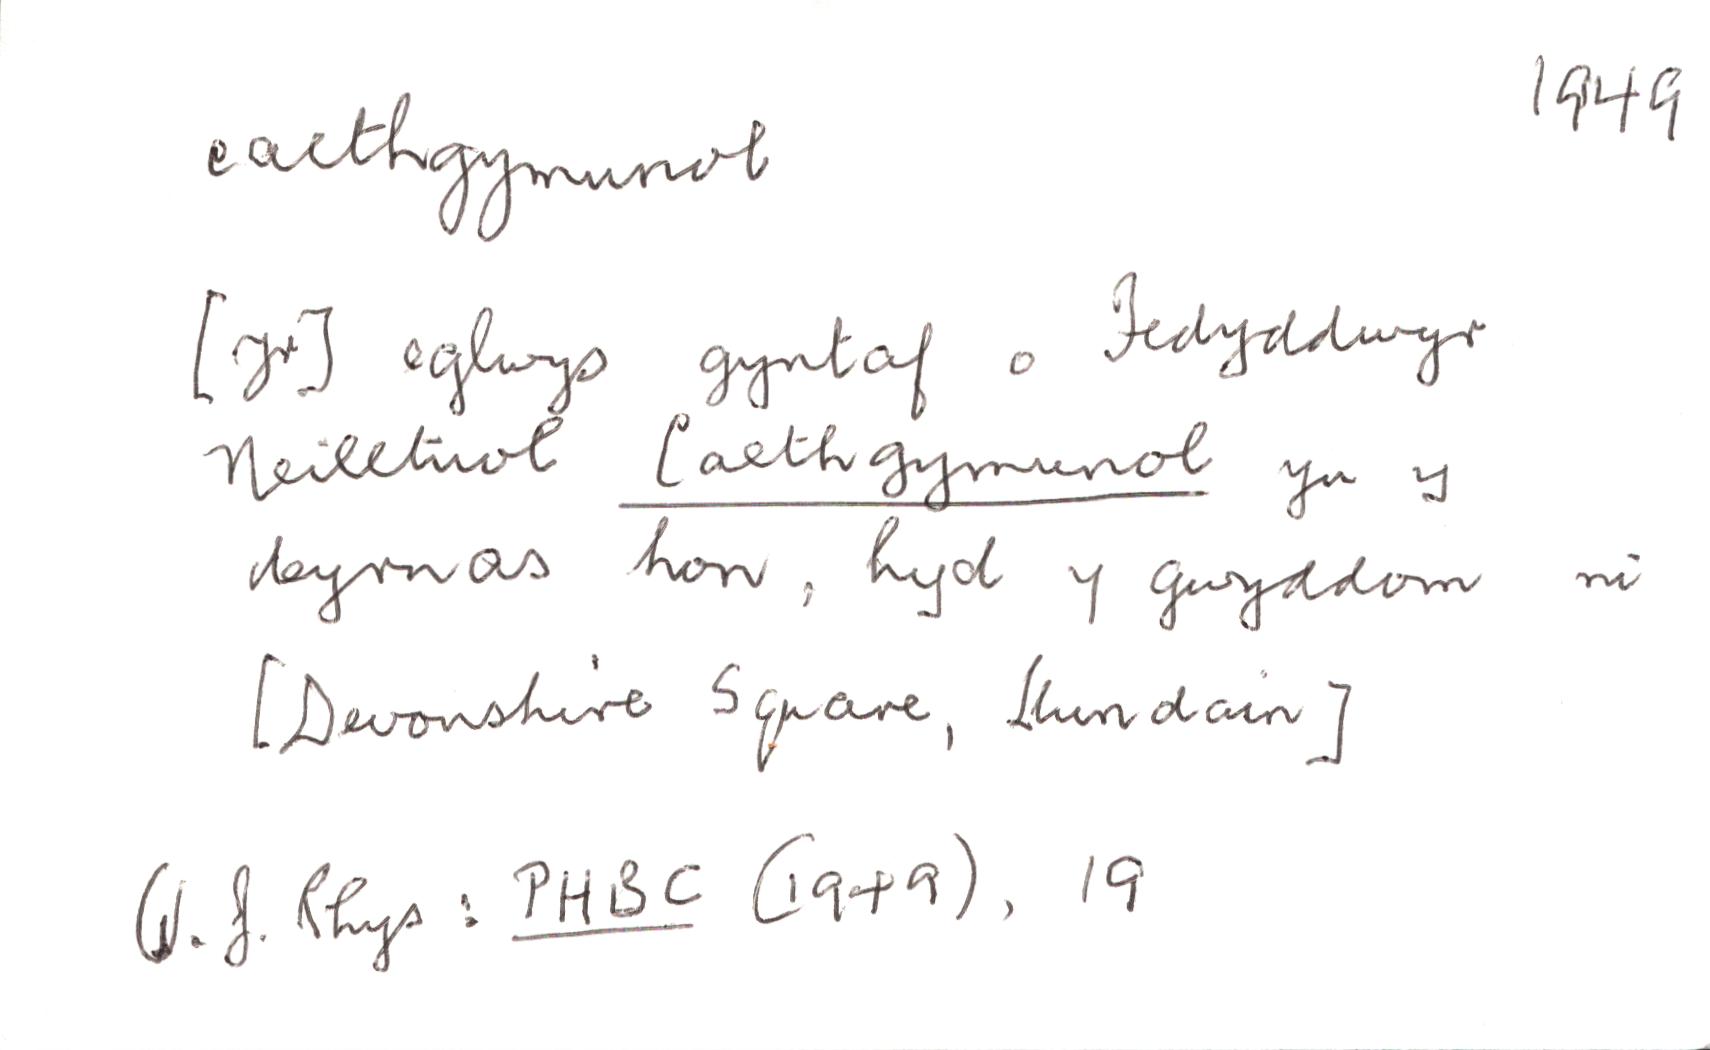 1949
caethgymunol
[yr] eglwys gyntaf o Fedyddwyr
Neilltuol Caethgymunol yn y
deyrnas hon, hyd y gwyddom ni
[Devonshire Square, Llundain]
W. J. Rhys : PHBC (1949), 19